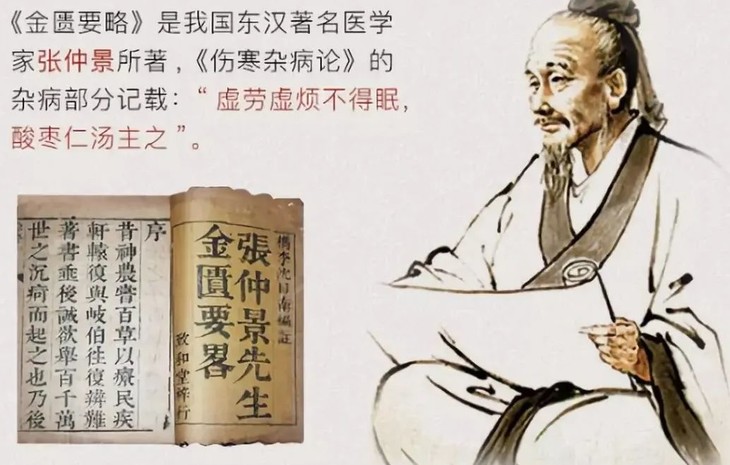 《金匮要略》是我国东汉著名医学
家张仲景所著，《伤寒杂病论》的
杂病部分记载：“虚劳虚烦不得眠，
酸枣仁汤主之”。
檇李沈目南編註
張仲景先生
金匱要畧
致和堂梓行
序
昔神農嘗百草以療民疾
軒轅復與岐伯往復辨難
著書垂後誠欲舉百千萬
世之沉疴而起之也乃後